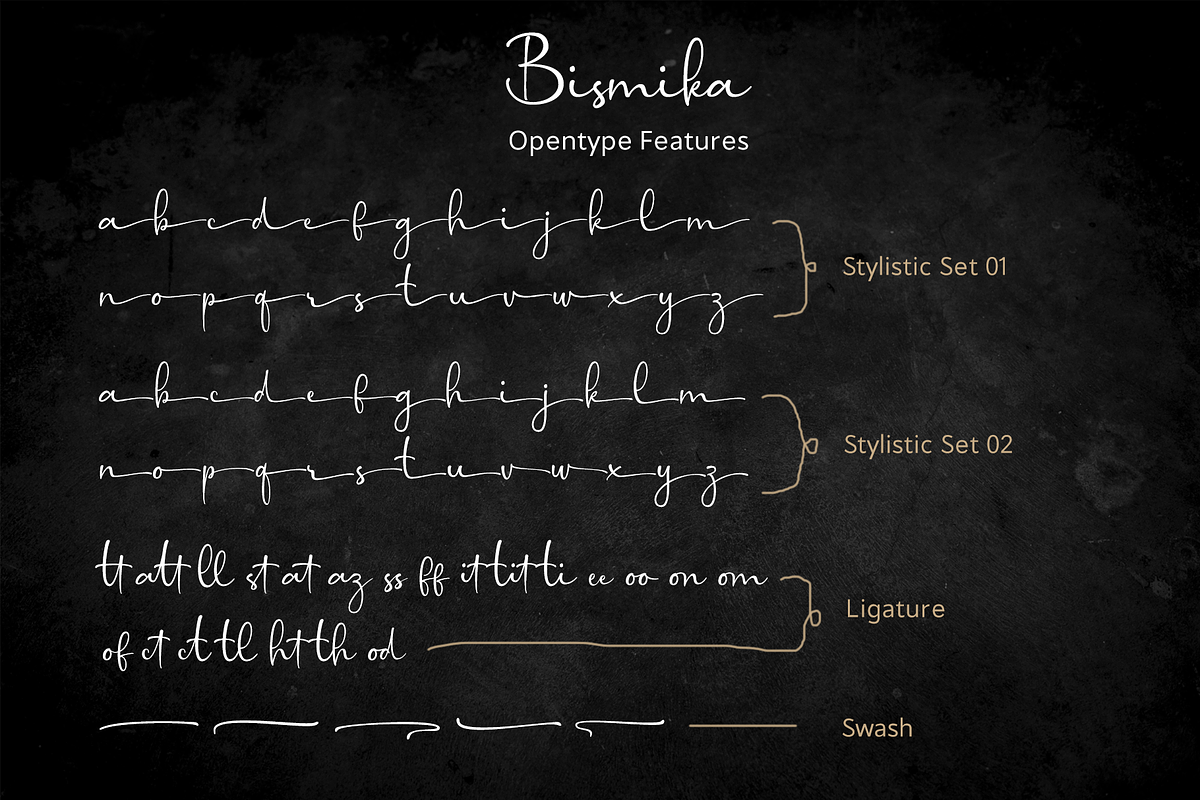 Bismika
Opentype Features
a b c d e f g h i j k l m
n o p q r s t u v w x y z
Stylistic Set 01
a b c d e f g h i j k l m
n o p q r s t u v w x y z
Stylistic Set 02
tt att ll st at az ss ff it tit ti ee oo on om
of ct ctt tl ht th od
Ligature
Swash